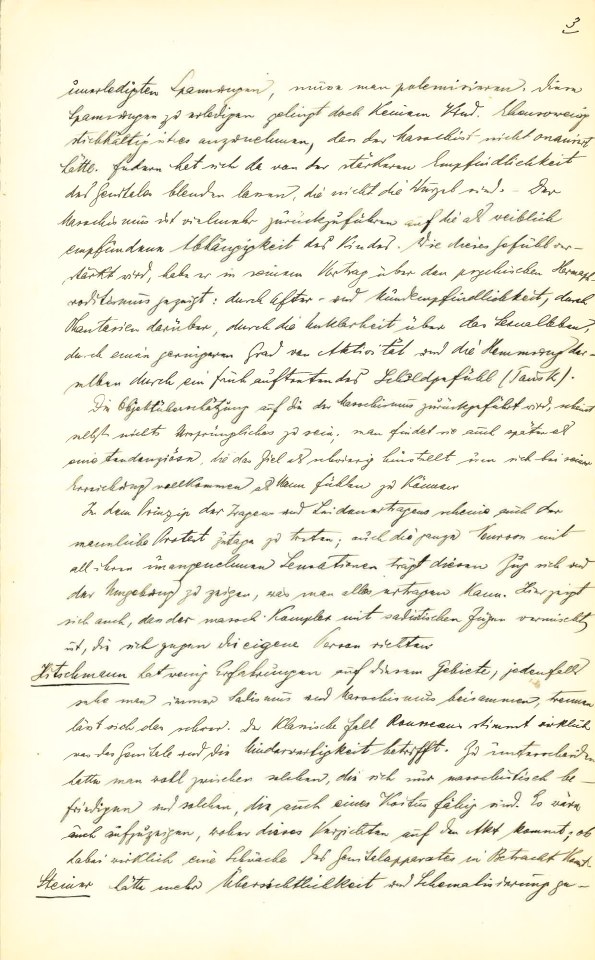 3
unerledigten Spannungen, müsse man polemisieren. Diese
Spannungen zu erledigen gelingt doch keinem Kind. Ebensowenig
stichhältig ist es anzunehmen, dass der Masochist nicht onaniert
hätte. Federn hat sich da von der stärkeren Empfindlichkeit
des Genitales blenden lassen, die nicht die Wurzel sind. – Der
Masochismus ist vielmehr zurückzuführen auf die als weiblich
empfundene Abhängigkeit des Kindes. Wie dieses Gefühl ver-
stärkt wird, habe er in seinem Vortrag über den psychischen Hermaph-
roditismus gezeigt: durch After- und Mundempfindlichkeit, durch
Phantasien darüber, durch die Unklarheit über das Sexualleben,
durch einen geringeren Grad von Aktivität und die Hemmung der-
selben durch ein früh auftretendes Schuldgefühl (Tausk).
Die Objektüberschätzung auf die der Masochismus zurückgeführt wird, scheint
selbst nichts Ursprüngliches zu sein, man findet sie auch später als
eine tendenziöse, die das Ziel als schwierig hinstellt um sich bei seiner
Erreichung vollkommen als Mann fühlen zu können
In dem Prinzip des und Leidenertragens scheine auch der
männliche Protest zutage zu treten; auch die ganze mit
all ihren unangenehmen Sensationen trägt diesen Zug sich und
der Umgebung zu zeigen, was man alles ertragen kann. Hier zeigt
sich auch, dass der masoch. Komplex mit sadistischen Zügen vermischt
ist, die sich gegen die eigene Person richten
Hitschmann hat wenig Erfahrungen auf diesem Gebiete, jedenfalls
sehe man immer Sadismus und Masochismus beisammen, trennen
lässt sich das schwer. Der klassische Fall Rousseaus stimmt wirklich
was das Genitale und die Minderwertigkeit betrifft. Zu unterscheiden
hätte man wohl zwischen solchen, die sich nur masochistisch be-
friedigen und solchen, die auch eines Koitus fähig sind. Es wäre
auch aufzuzeigen, woher dieses Verzichten auf den Akt kommt; ob
dabei wirklich eine Schwäche des Genitalapparates in Betracht kommt.
Steiner hätte mehr Übersichtlichkeit und Schematisierung ge-